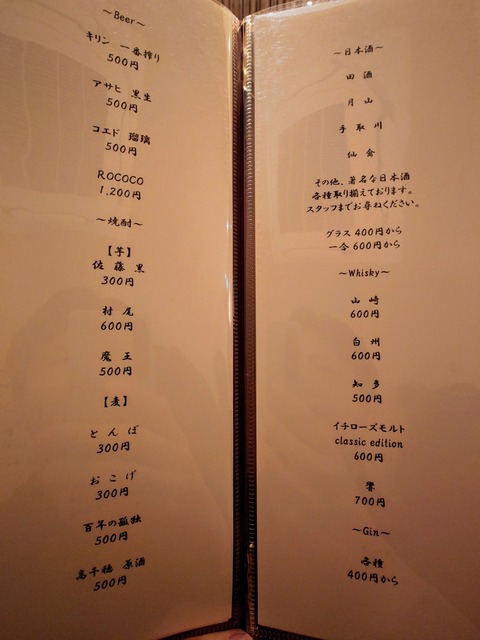 ～Beer～
キリン 一番搾り
500円
アサヒ 黒生
500円
コエド 瑠璃
500円
ROCOCO
1,200円
～焼酎～
【芋】
佐藤 黒
300円
村尾
600円
魔王
500円
【麦】
とんぼ
300円
おこげ
300円
百年の孤独
500円
高千穂 原酒
500円
～日本酒～
田酒
月山
手取川
仙禽
その他、著名な日本酒
各種取り揃えております。
スタッフまでお尋ねください。
グラス 400円から
一合 600円から
～Whisky～
山崎
600円
白州
600円
知多
500円
イチローズモルト
classic edition
600円
響
700円
～Gin～
各種
400円から